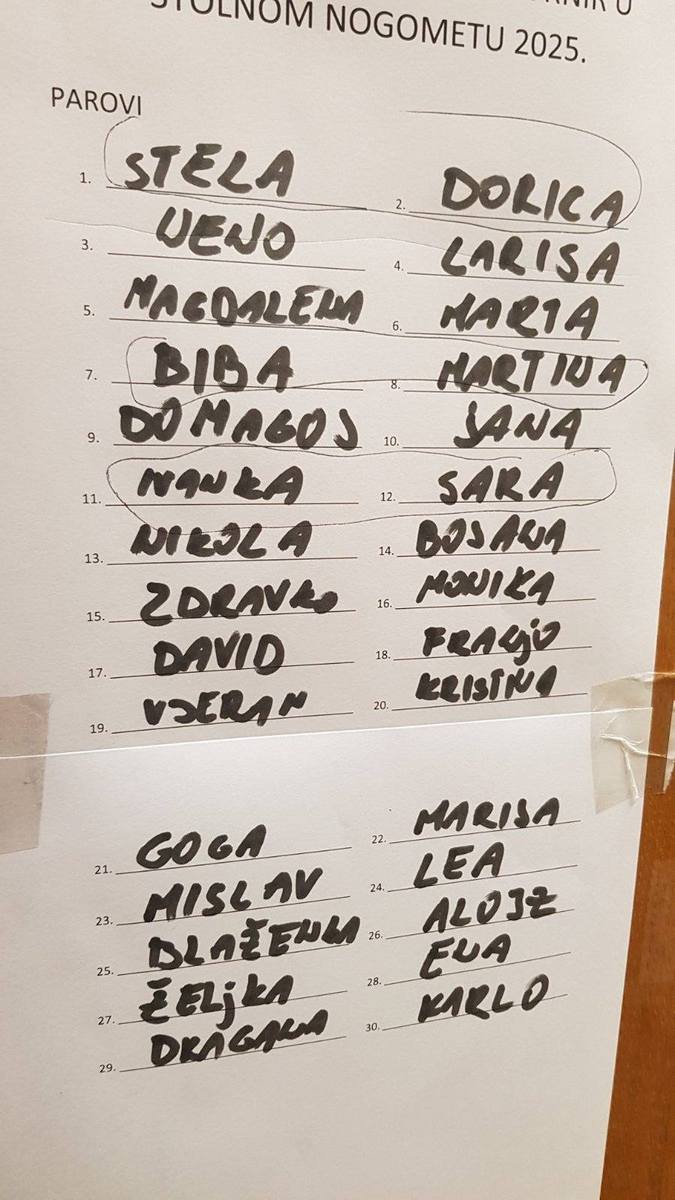 RNIR U
STOLNOM NOGOMETU 2025.
PAROVI
1. STELA
2. DORICA
3. VENO
4. LARISA
5. MAGDALENA
6. MARTA
7. BIBA
8. MARTINA
9. DOMAGOJ
10. JANA
11. NANKA
12. SARA
13. NIKOLA
14. BOJANA
15. ZDRAVKO
16. MONIKA
17. DAVID
18. FRANJO
19. VJERAN
20. KRISTINA
21. GOGA
22. MARISA
23. MISLAV
24. LEA
25. BLAŽENKA
26. ALOJZ
27. ŽELJKA
28. ENA
29. DRAGANA
30. KARLO